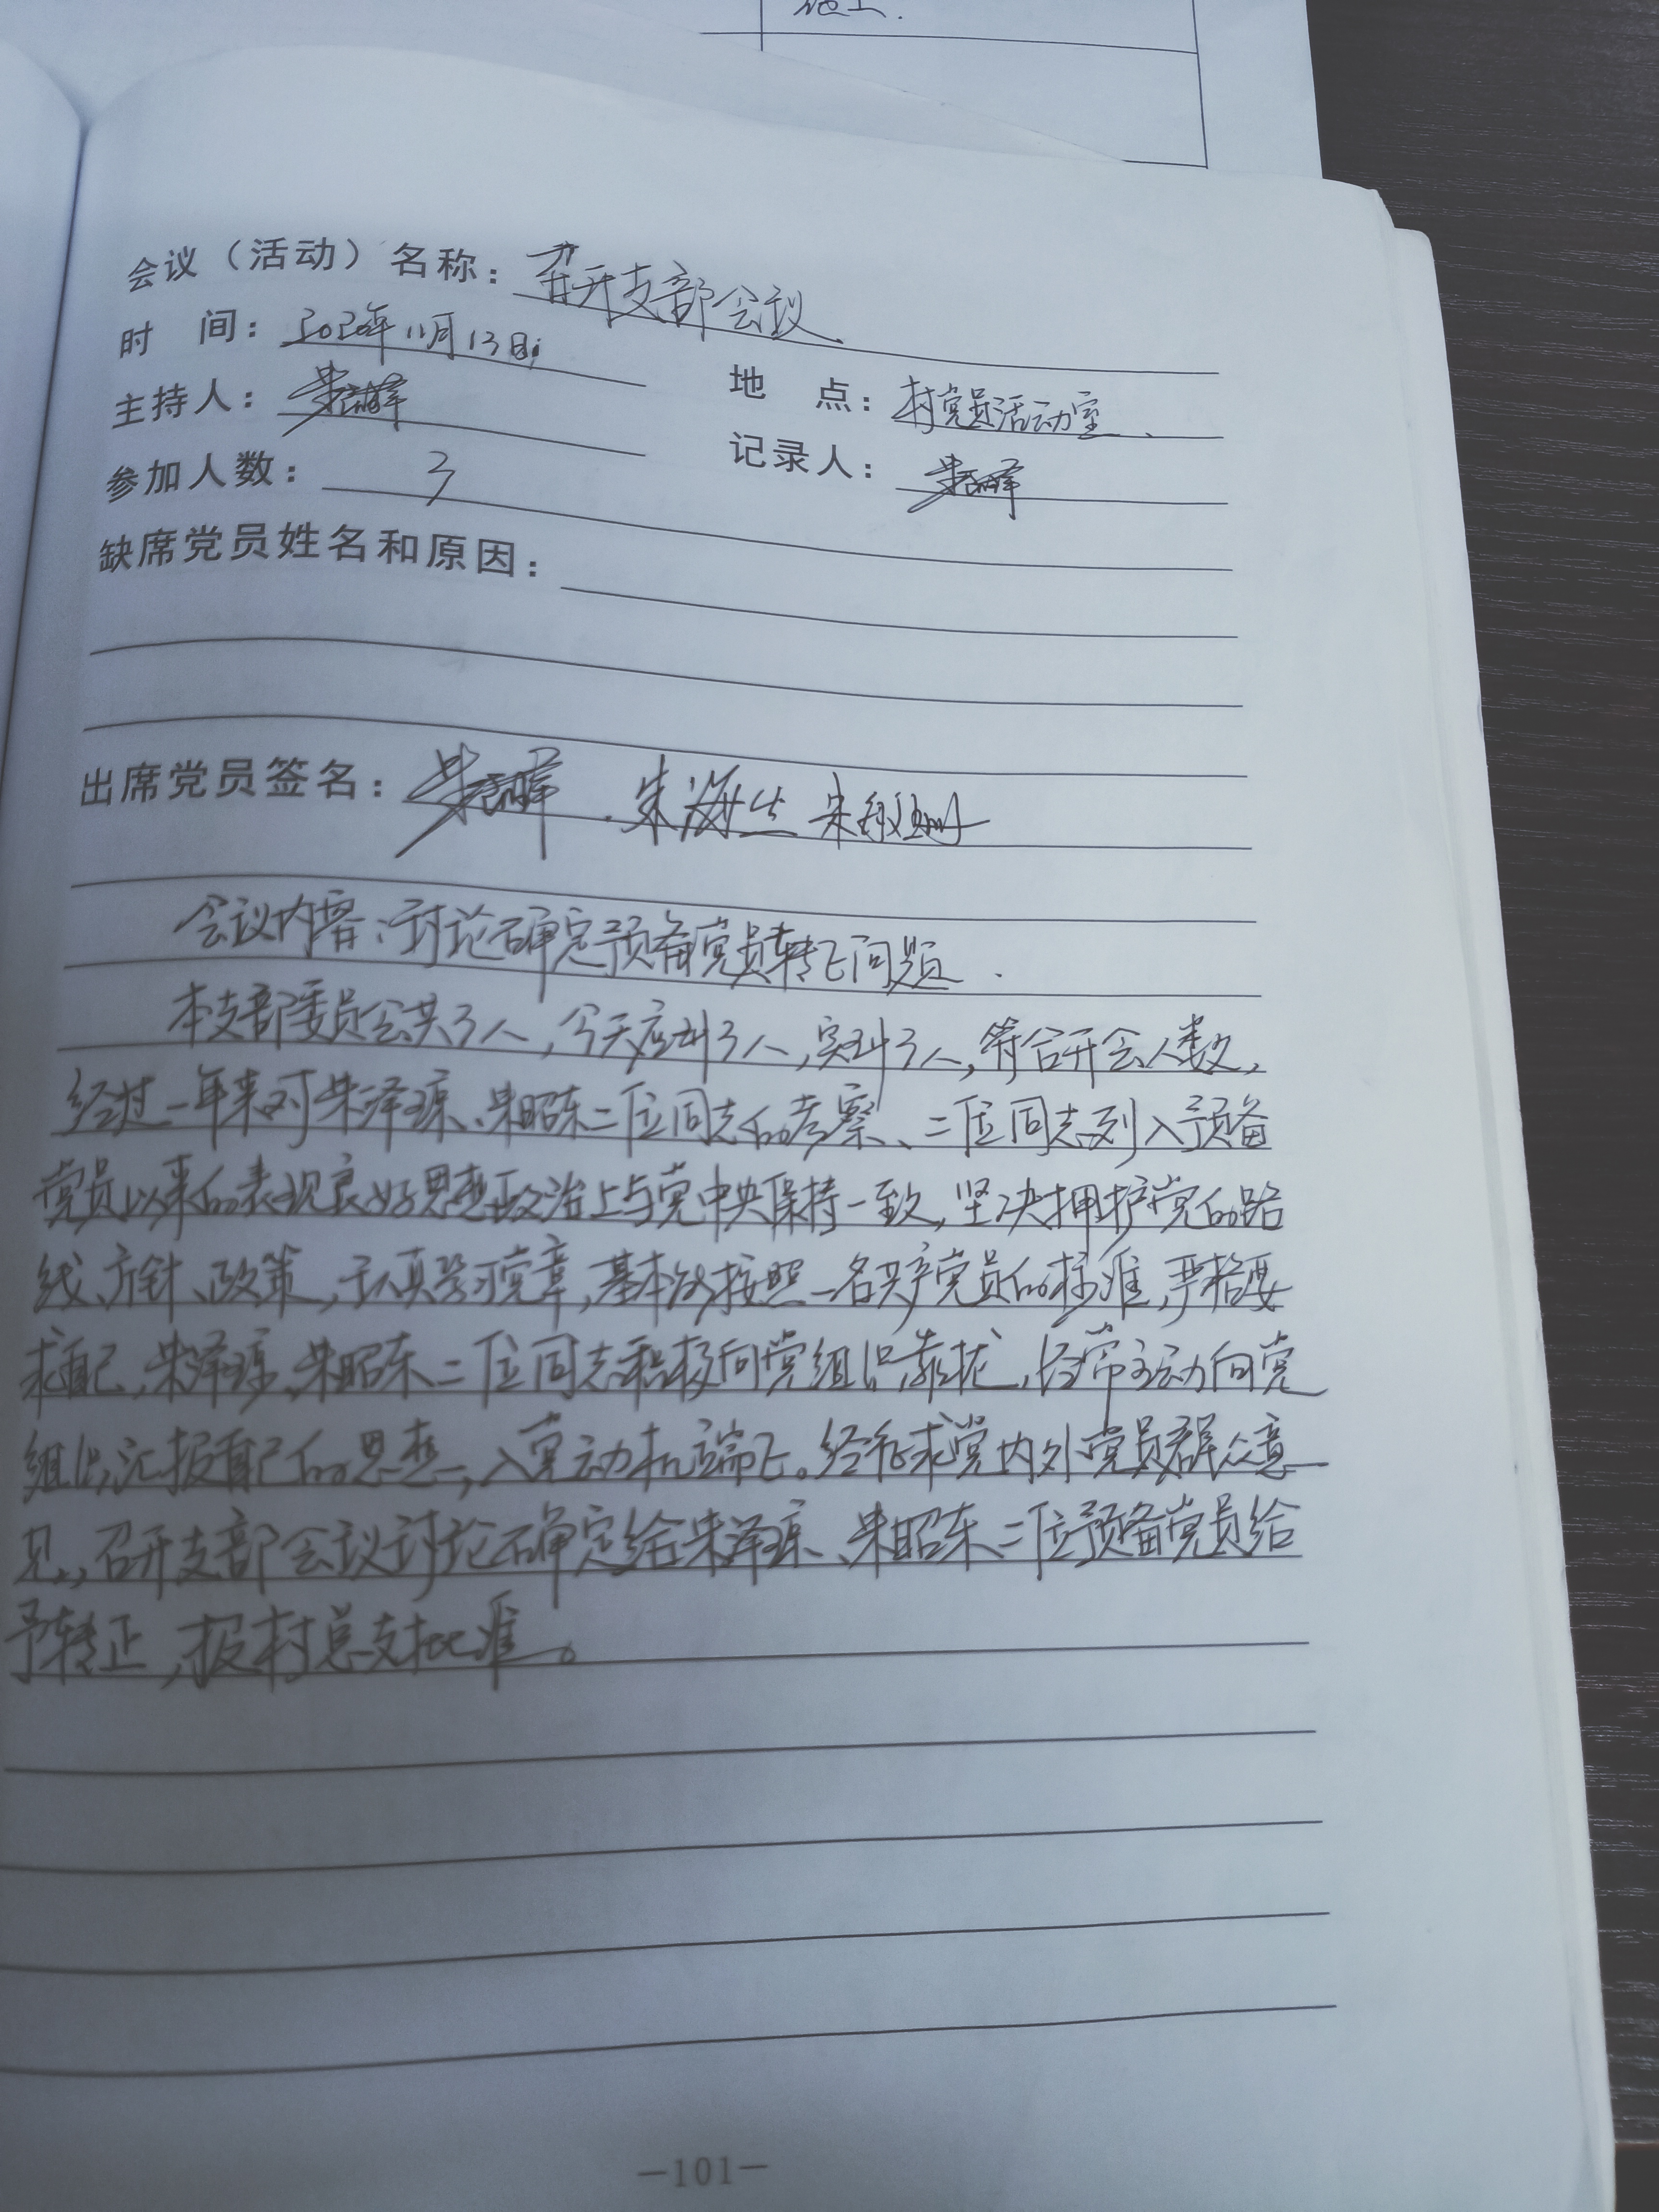 施工.
会议（活动）名称：召开支部会议.
时 间：2020年11月13日
地 点：村党员活动室.
主持人：朱
记录人：朱
参加人数：3
缺席党员姓名和原因：
出席党员签名：朱 . 朱海生 朱
会议内容：讨论确定预备党员转正问题.
本支部委员会共3人，今天应到3人，实到3人，符合开会人数，
经过一年来对朱泽琼、朱昭东二位同志的考察、二位同志列入预备
党员以来的表现良好思想政治上与党中央保持一致，坚决拥护党的路
线、方针、政策，认真学习党章，基本能按照一名共产党员的标准，严格要
求自己，朱泽琼、朱昭东二位同志积极向党组织靠拢，经常主动向党
组织汇报自己的思想，入党动机端正。经征求党内外党员群众意
见，召开支部会议讨论确定给朱泽琼、朱昭东二位预备党员给
予转正，报村总支批准。
—101—